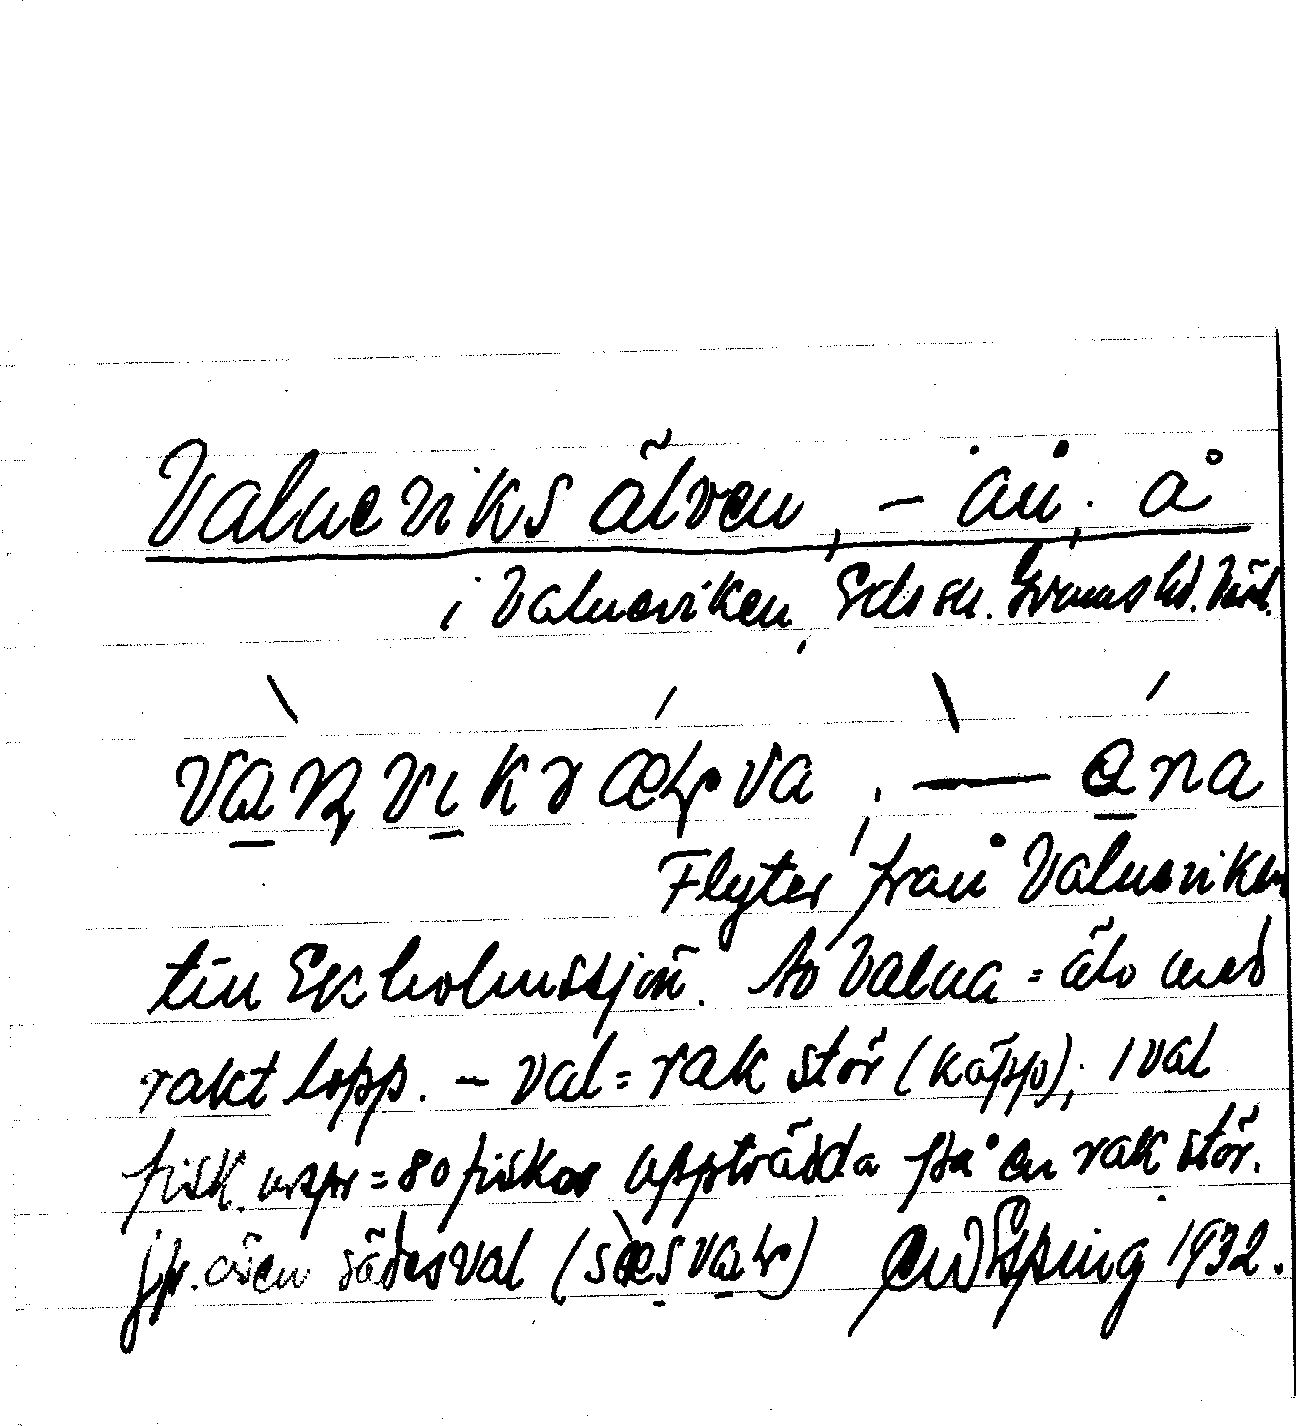 Valneviksälven, -ån; å
i Valneviken, Eds sn. Grums hd. Värml.
vanvikrælva, — åna
Flyter från Valneviken
till Ekholmssjön. Av Valna = älv med
rakt lopp. - Val = rak stör (käpp); 1 val
fisk urspr = 80 fiskar uppträdda på en rak stör.
jfr. även sädesval (sæsval) 1932.